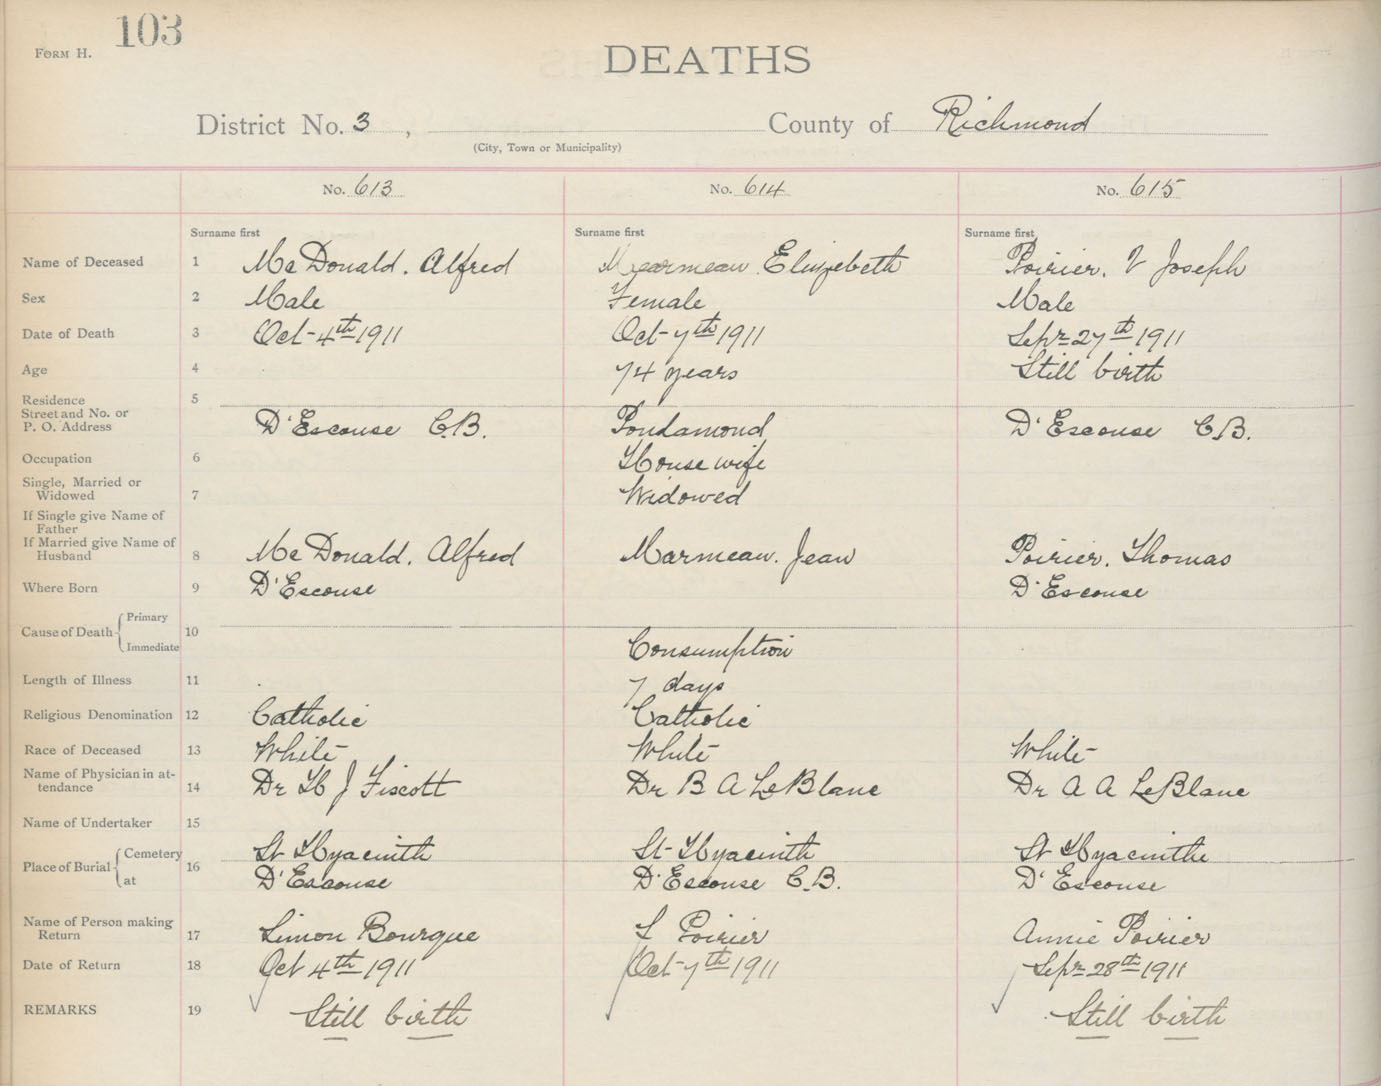 103
FORM H.
DEATHS
District No. 3 , County of Richmond
(City, Town or Municipality)
No. 613 No. 614 No. 615
Surname first Surname first Surname first
Name of Deceased 1 Mc Donald. Alfred Elizebeth Poirier. V Joseph
Sex 2 Male Female Male
Date of Death 3 Oct-4th 1911 Oct-7th 1911 Sepr 27th 1911
Age 4 74 years Still birth
Residence 5
Street and No. or
P. O. Address D'Escouse C.B. Poulamond D'Escouse C.B.
Occupation 6 House wife
Single, Married or
Widowed 7 Widowed
If Single give Name of
Father
If Married give Name of
Husband 8 Mc Donald. Alfred Marmeau. Jean Poirier. Thomas
Where Born 9 D'Escouse D'Escouse
Primary
Cause of Death 10
Immediate Consumption
Length of Illness 11 7 days
Religious Denomination 12 Catholic Catholic
Race of Deceased 13 White White White
Name of Physician in at-
tendance 14 Dr H J Fiscott Dr B A LeBlanc Dr A A LeBlanc
Name of Undertaker 15
Cemetery St Hyacinth St Hyacinth St Hyacinthe
Place of Burial 16
at D'Escouse D'Escouse C.B. D'Escouse
Name of Person making
Return 17 Simon Bourque S Poirier Annie Poirier
Date of Return 18 Oct 4th 1911 Oct-7th 1911 Sepr 28th 1911
REMARKS 19 Still birth Still birth